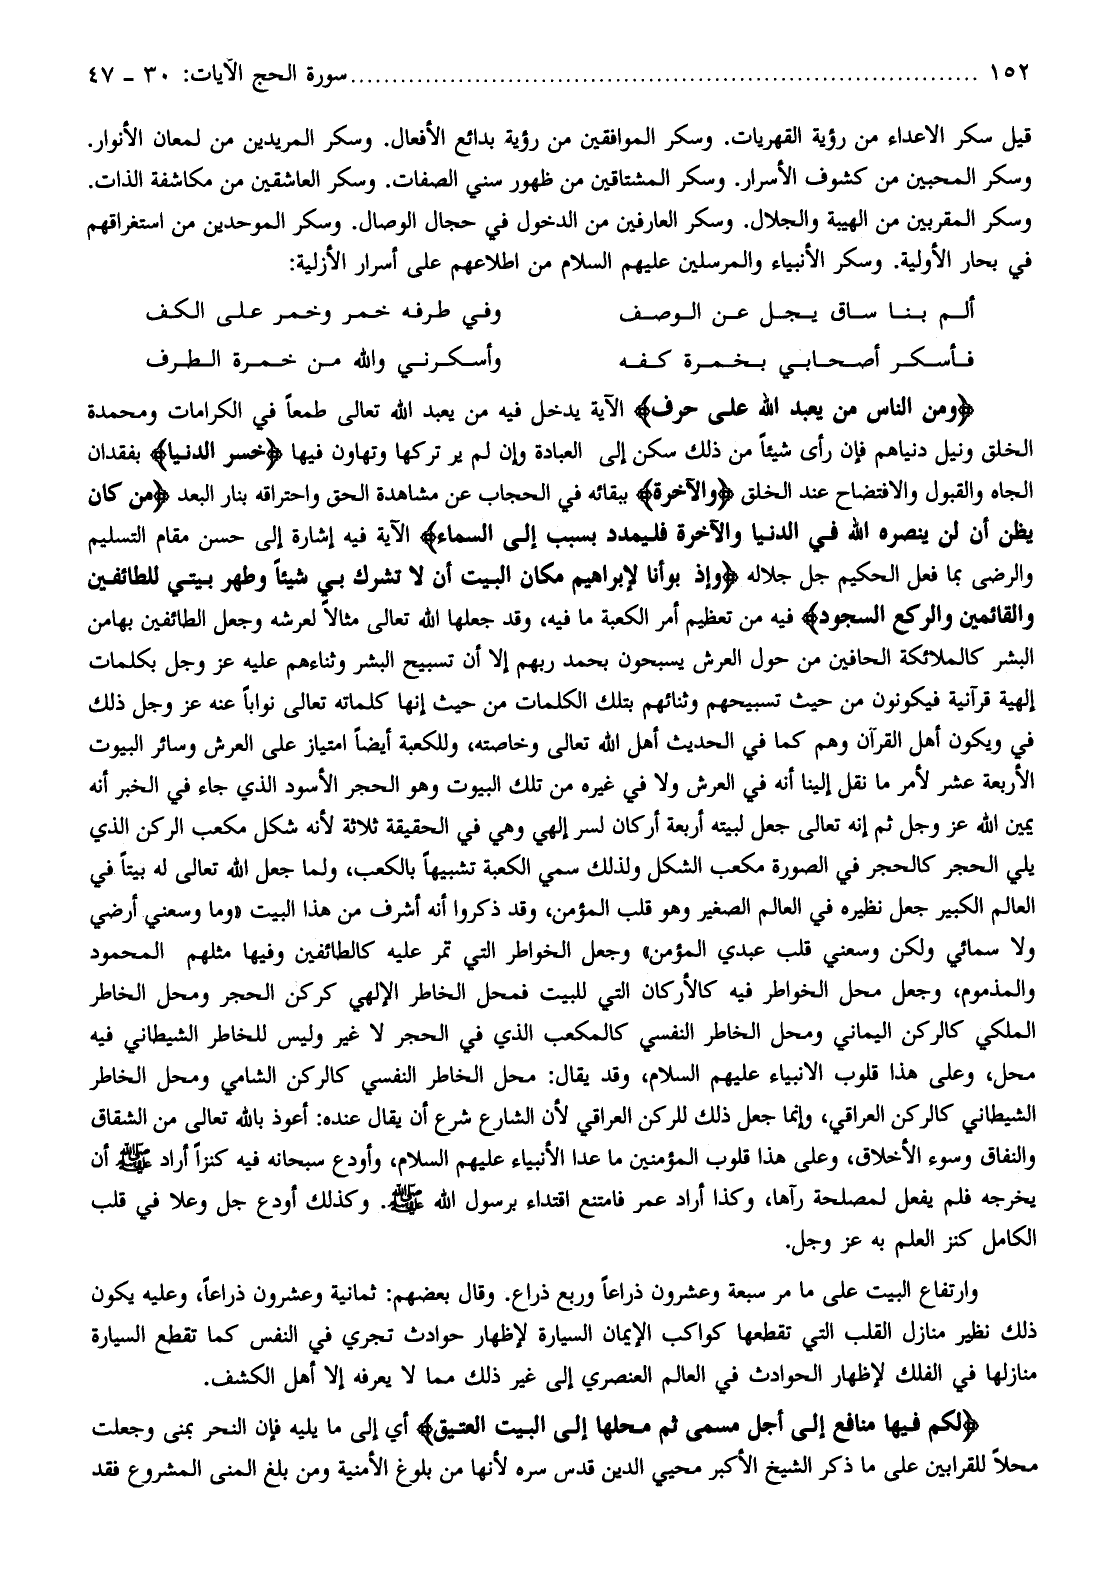 ١٥٢ ........................................................................... سورة الحج الآيات: ٣٠ - ٤٧
قيل سكر الاعداء من رؤية القهريات. وسكر الموافقين من رؤية بدائع الأفعال. وسكر المريدين من لمعان الأنوار.
وسكر المحبين من كشوف الأسرار. وسكر المشتاقين من ظهور سني الصفات. وسكر العاشقين من مكاشفة الذات.
وسكر المقربين من الهيبة والجلال. وسكر العارفين من الدخول في حجال الوصال. وسكر الموحدين من استغراقهم
في بحار الأولية. وسكر الأنبياء والمرسلين عليهم السلام من اطلاعهم على أسرار الأزلية:
ألم بنا ساق يجل عن الوصف وفي طرفه خمر وخمر على الكف
فأسكر أصحابي بخمرة كفه وأسكرني والله من خمرة الطرف
﴿ومن الناس من يعبد الله على حرف﴾ الآية يدخل فيه من يعبد الله تعالى طمعاً في الكرامات ومحمدة
الخلق ونيل دنياهم فإن رأى شيئاً من ذلك سكن إلى العبادة وإن لم ير تركها وتهاون فيها ﴿خسر الدنيا﴾ بفقدان
الجاه والقبول والافتضاح عند الخلق ﴿والآخرة﴾ ببقائه في الحجاب عن مشاهدة الحق واحتراقه بنار البعد ﴿من كان
يظن أن لن ينصره الله في الدنيا والآخرة فليمدد بسبب إلى السماء﴾ الآية فيه إشارة إلى حسن مقام التسليم
والرضى بما فعل الحكيم جل جلاله ﴿وإذ بوأنا لإبراهيم مكان البيت أن لا تشرك بي شيئاً وطهر بيتي للطائفين
والقائمين والركع السجود﴾ فيه من تعظيم أمر الكعبة ما فيه، وقد جعلها الله تعالى مثالاً لعرشه وجعل الطائفين بهامن
البشر كالملائكة الحافين من حول العرش يسبحون بحمد ربهم إلا أن تسبيح البشر وثناءهم عليه عز وجل بكلمات
إلهية قرآنية فيكونون من حيث تسبيحهم وثنائهم بتلك الكلمات من حيث إنها كلماته تعالى نواباً عنه عز وجل ذلك
في ويكون أهل القرآن وهم كما في الحديث أهل الله تعالى وخاصته، وللكعبة أيضاً امتياز على العرش وسائر البيوت
الأربعة عشر لأمر ما نقل إلينا أنه في العرش ولا في غيره من تلك البيوت وهو الحجر الأسود الذي جاء في الخبر أنه
يمين الله عز وجل ثم إنه تعالى جعل لبيته أربعة أركان لسر إلهي وهي في الحقيقة ثلاثة لأنه شكل مكعب الركن الذي
يلي الحجر كالحجر في الصورة مكعب الشكل ولذلك سمي الكعبة تشبيهاً بالكعب، ولما جعل الله تعالى له بيتاً في
العالم الكبير جعل نظيره في العالم الصغير وهو قلب المؤمن، وقد ذكروا أنه أشرف من هذا البيت «وما وسعني أرضي
ولا سمائي ولكن وسعني قلب عبدي المؤمن» وجعل الخواطر التي تمر عليه كالطائفين وفيها مثلهم المحمود
والمذموم، وجعل محل الخواطر فيه كالأركان التي للبيت فمحل الخاطر الإلهي كركن الحجر ومحل الخاطر
الملكي كالركن اليماني ومحل الخاطر النفسي كالمكعب الذي في الحجر لا غير وليس للخاطر الشيطاني فيه
محل، وعلى هذا قلوب الانبياء عليهم السلام، وقد يقال: محل الخاطر النفسي كالركن الشامي ومحل الخاطر
الشيطاني كالركن العراقي، وإنما جعل ذلك للركن العراقي لأن الشارع شرع أن يقال عنده: أعوذ بالله تعالى من الشقاق
والنفاق وسوء الأخلاق، وعلى هذا قلوب المؤمنين ما عدا الأنبياء عليهم السلام، وأودع سبحانه فيه كنزاً أراد ﷺ أن
يخرجه فلم يفعل لمصلحة رآها، وكذا أراد عمر فامتنع اقتداء برسول الله ﷺ. وكذلك أودع جل وعلا في قلب
الكامل كنز العلم به عز وجل.
وارتفاع البيت على ما مر سبعة وعشرون ذراعاً وربع ذراع. وقال بعضهم: ثمانية وعشرون ذراعاً، وعليه يكون
ذلك نظير منازل القلب التي تقطعها كواكب الإيمان السيارة لإظهار حوادث تجري في النفس كما تقطع السيارة
منازلها في الفلك لإظهار الحوادث في العالم العنصري إلى غير ذلك مما لا يعرفه إلا أهل الكشف.
﴿لكم فيها منافع إلى أجل مسمى ثم محلها إلى البيت العتيق﴾ أي إلى ما يليه فإن النحر بمنى وجعلت
محلاً للقرابين على ما ذكر الشيخ الأكبر محيي الدين قدس سره لأنها من بلوغ الأمنية ومن بلغ المنى المشروع فقد